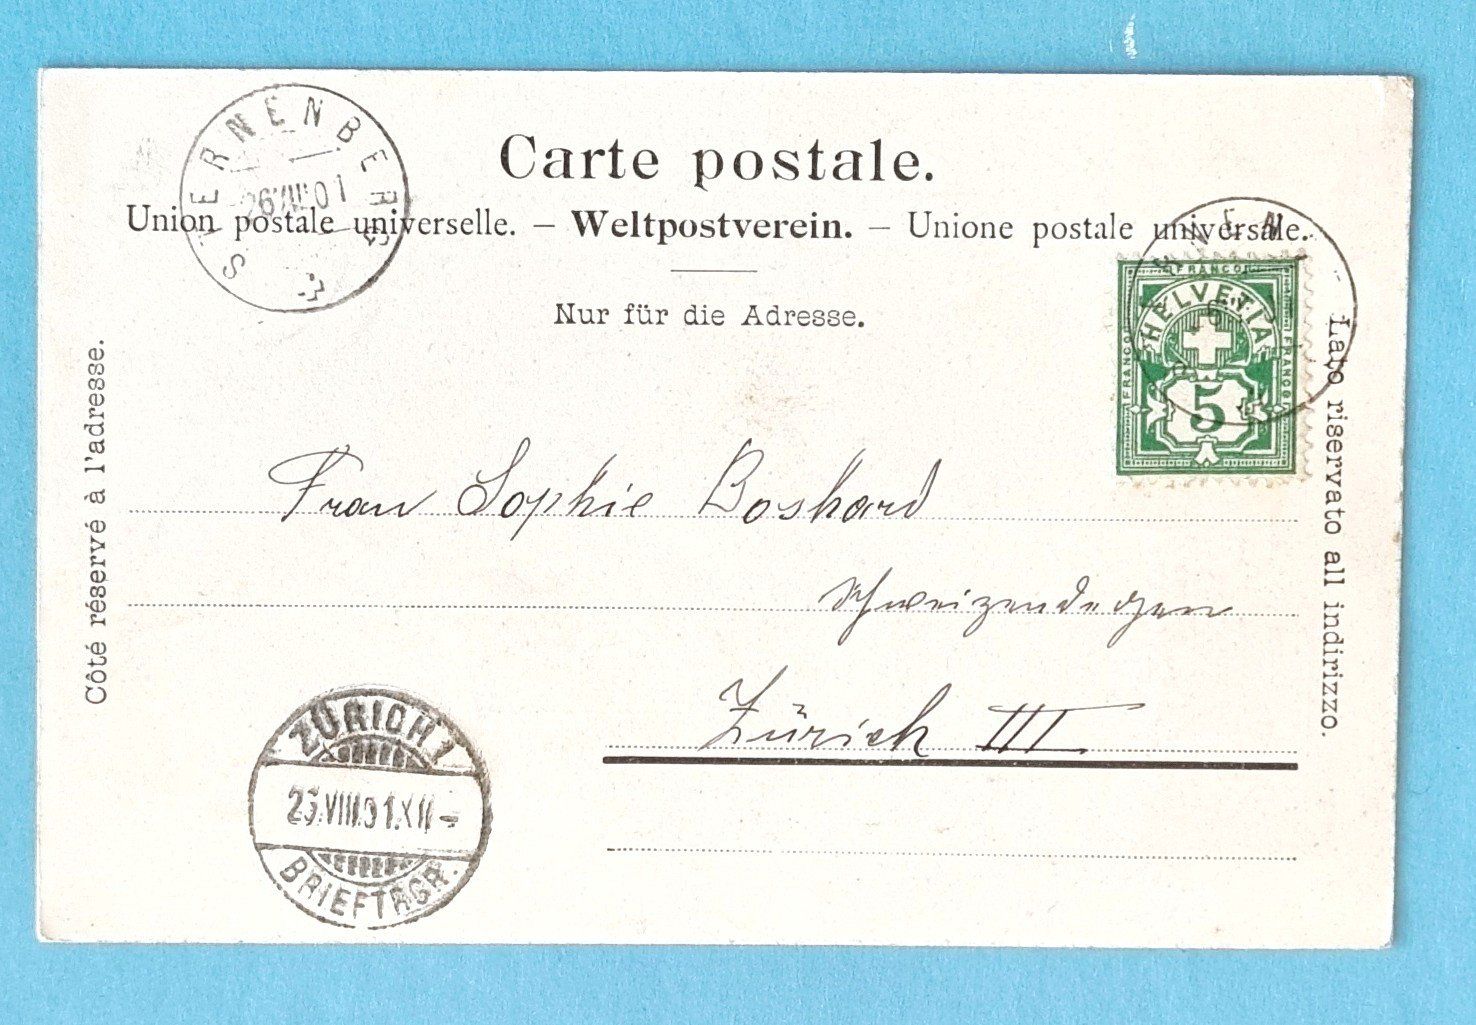 STERNENBERG
26 VIII 01
Carte postale.
Union postale universelle. – Weltpostverein. – Unione postale universale.
Nur für die Adresse.
FRANCO
HELVETIA
FRANCO
FRANCO
5
Côté réservé à l'adresse.
Lato riservato all indirizzo.
Frau Sophie Boshard
Zürich III
ZÜRICH 1
26.VIII.01.XII–
BRIEFTRGR.